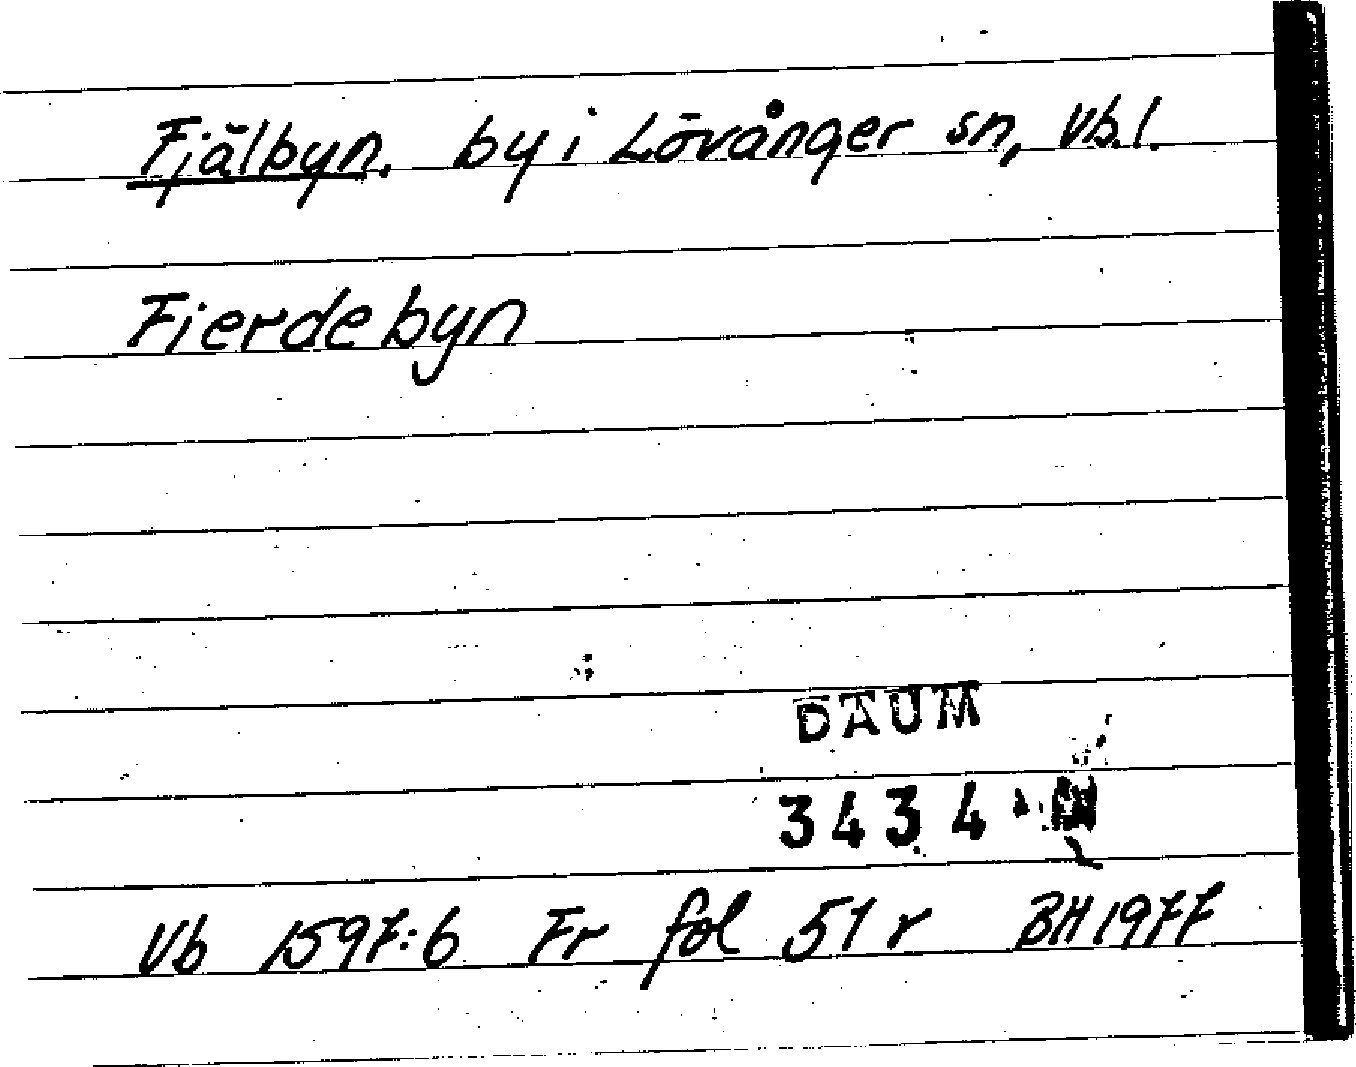 Fjälbyn. by i Lövånger sn, Vb.l.
Fierdebyn
DAUM
3434
Vb 1597:6 Fr fol 51 r BH 1977